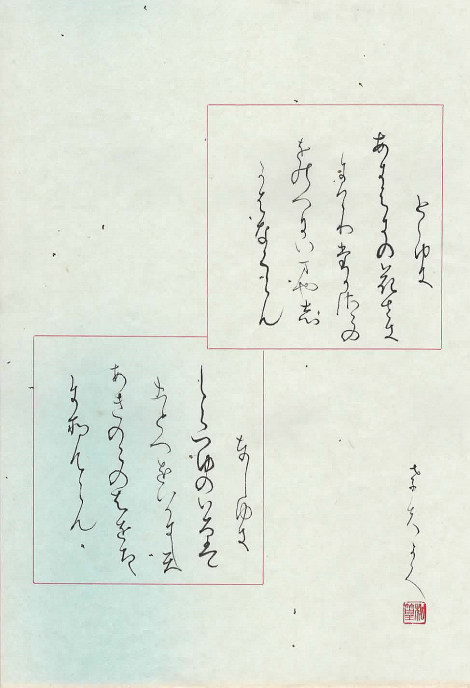 としゆき
あきはきの花さき
にけりたかさこの
をのへにいまや志
かはなくらん
としゆき
しらつゆのいろは
ひとつをいかにして
あきのこのはをちゝ
にそむらん